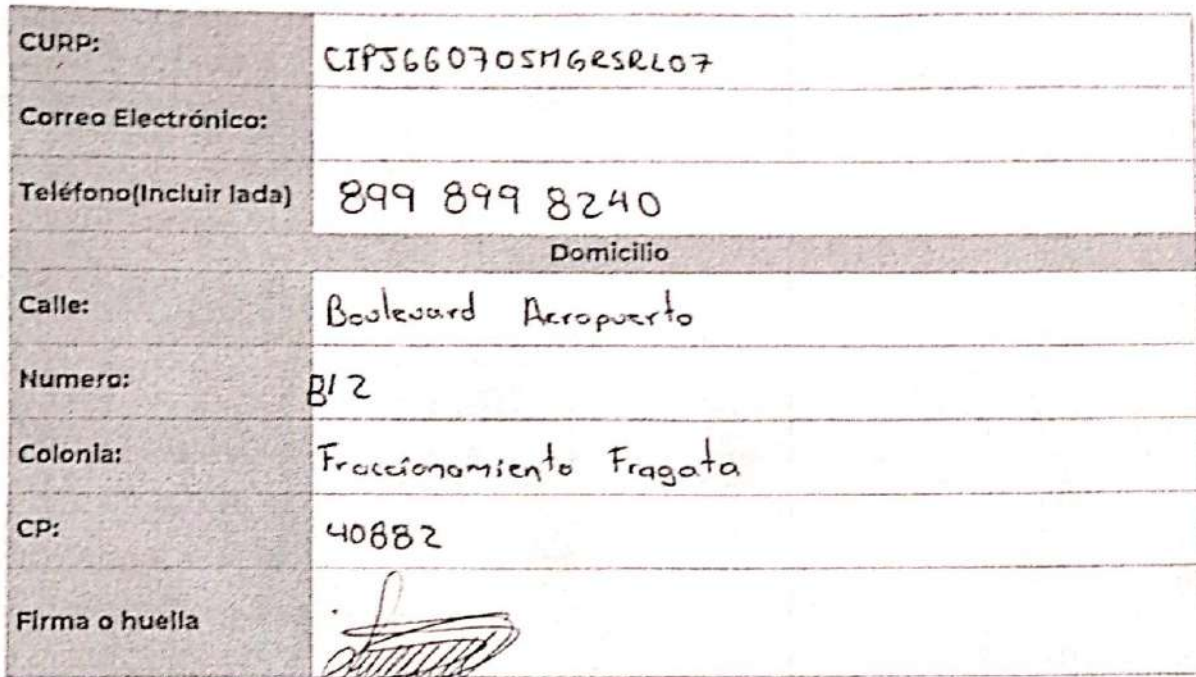 CURP: CIPJ660705MGRSRL07
Correo Electrónico:
Teléfono(Incluir lada) 899 899 8240
Domicilio
Calle: Boulevard Aeropuerto
Numero: B12
Colonia: Fraccionamiento Fragata
CP: 40882
Firma o huella